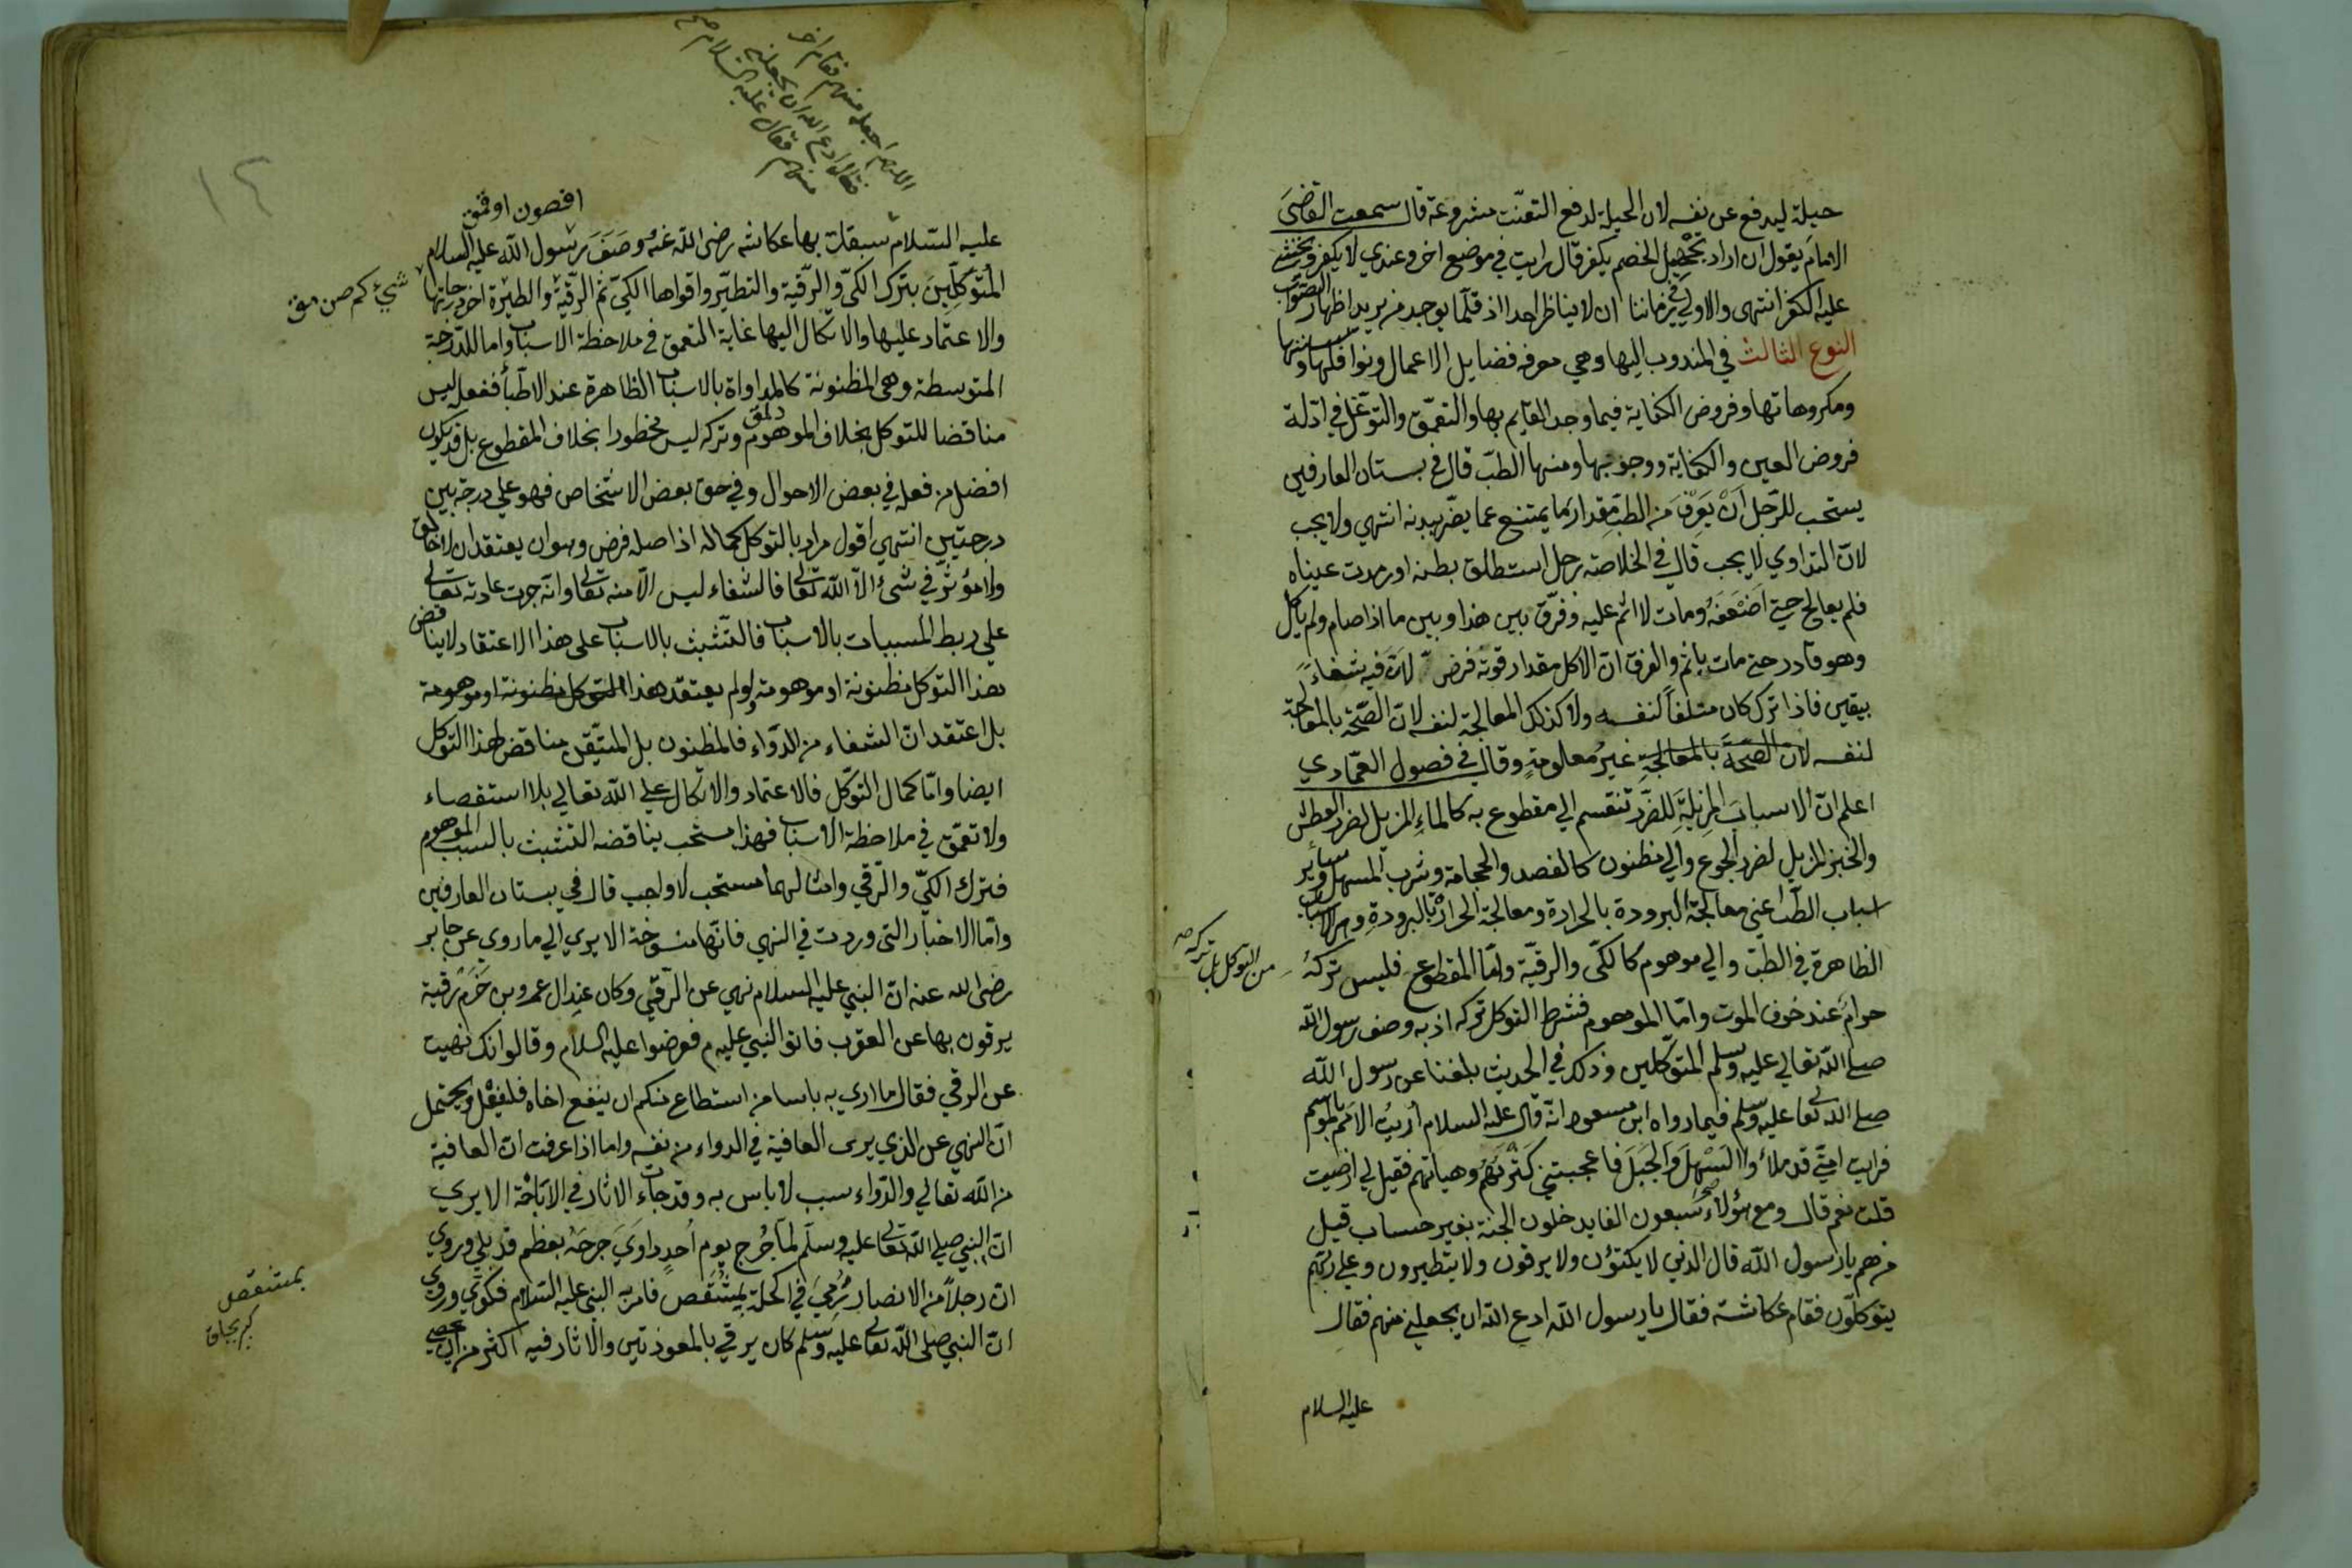 حيلة ليدفع عن نفسه لان الحيلة لدفع التعنّت مشروعة قال سمعت القاضى
الامام يقول ان اراد تخجيل الخصم يكفر قال ورايت في موضع اخر وعندي لا يكفر ويخشى
عليه الكفر انتهى والاولى في زماننا ان لا يناظر احدا اذ قلّما يوجد من يريد اظهار الصواب
النوع الثالث في المندوب اليها وهي معرفة فضايل الاعمال ونوافلها وسننها
ومكروهاتها وفروض الكفاية فيما وجد القايم بها والتعمّق والتوغّل في ادلة
فروض العين والكفاية ووجوبها ومنها الطبّ قال في بستان العارفين
يستحب للرّجل ان يعرف من الطب مقدار ما يمتنع عما يضر ببدنه انتهي ولا يجب
لانّ التداوي لا يجب قال في الخلاصة رجل استطلق بطنه او رمدت عيناه
فلم يعالج حتى اضعفه ومات لا اثم عليه وفرّق بين هذا وبين ما اذا صام ولم ياكل
وهو قادر حتى مات ياثم والفرق انّ الاكل مقدار قوته فرض لانّ فيه شفاءً
بيقين فاذا ترك كان متلفاً لنفسه ولا كذلك المعالجة لنفسه لانّ الصّحّة بالمعالجة
لنفسه لان الصحّة بالمعالجةِ غيرُ معلومةٍ وقال في فصول العمّادي
اعلم انّ الاسبابَ المزيلةَ للضّرر تنقسم الي مقطوع به كالماءِ المزيل لضرر العطش
والخبز المزيل لضرر الجوع والي مظنون كالفصد والحجامة وشرب المسهل وساير
اسباب الطّبّ اعني معالجة البرودة بالحرارة ومعالجة الحرارة بالبرودةِ وهي الاسباب
الظاهرة في الطبّ والي موهوم كالكىّ والرقيّة وامّا المقطوع فليس تركهُ
من التوكل بل تركه صح
حرام عند خوف الموت وامّا الموهوم فشرط التوكل تركه اذ به وصف رسول الله
صلى الله تعالي عليه وسلم المتوكّلين وذلك في الحديث بلغنا عن رسول الله
صلى الله تعا عليه وسلم فيما رواه ابن مسعود انّه قال عليه السلام أُريتُ الاممَ بالموسم
فرايت امتي قد ملأُوا السّهلَ والجبلَ فاعجبتني كثرتهم وهيأتهم فقيل لي ارضيت
قلت نعم قال ومع هؤلاء سبعون الفا يدخلون الجنة بغير حساب قيل
من هم يا رسول الله قال الذين لا يكتوُن ولا يرقون ولا يتطيرون وعلى ربّهم
يتوكلّون فقام عكاشة فقال يا رسول الله ادع الله ان يجعلني منهم فقال
عليه السلام
اللهم اجعله منهم فقام اخر
فقال ادع الله ان يجعلني
منهم فقال عليه السّلام صح
١٢
عليه السّلام سبقك بها عكاشه رضى الله عنهُ وصَفَ رسُول الله عليه السلام
المتوكّلين بترك الكىّ والرّقية والتطيّر واقواها الكىّ ثم الرّقية والطيرة اخر درجاتها
والاعتماد عليها والاتكال اليها غاية التعمق في ملاحظة الاسباب واما للدّرجة
المتوسطة وهى المظنونة كالمداواة بالاسباب الظاهرة عند الاطبّأ ففعله ليس
مناقضا للتوكل بخلاف الموهوم وتركه ليس محظورا بخلاف المقطوع بل قد يكون
افضل من فعله في بعض الاحوال وفي حق بعض الاشخاص فهو علي درجة بين
درجتين انتهي اقول مراد بالتوكل كماله اذ اصله فرض وهو ان يعتقد ان لا خالق
ولا مؤثّر في شىء الّا الله تعا فالشفاء ليس الّا منه تعا وانّه جرت عادته تعالى
علي ربط المسببات بالاسباب فالتّشبث بالاسباب على هذا الاعتقاد لا يناقض
هذا التوكل مظنونة او موهومة ولو لم يعتقد هذا التوكل مظنونة او موهومة
بل اعتقد انّ الشفاء من الدّوَاء فالمظنون بل المتيّقن مناقض لهذا التوكل
ايضا وامّا كمال التوّكل فالاعتماد والاتكال على الله تعالي بلا استقصاء
ولا تعمّق في ملاحظة الاسباب فهذا مستحب يناقضه التشبث بالسبب الموهوم
فترك الكىّ والرّقي وامثالهما مستحب لا واجب قال في بستان العارفين
وامّا الاخبار التى وردت في النهي فانّها منسوخة الا يري الي ما روي عن جابر
رضى الله عنه انّ النبي عليه السلام نهي عن الرّقي وكان عند ال عمرو بن حَزم رقية
يرقون بها عن العقرب فاتو النبي عليهم فعرضوا عليه السلام وقالوا انك نهيت
عن الرقي فقال ما اري به باسا من استطاع منكم ان ينفع اخاه فليفعل ويحتمل
انّ النهي عن الذي يرى العافية في الدواء من نفسه واما اذا عرفت انّ العافية
من الله تعالي والدّواء سبب لا باس به وقد جاءت الاثار في الاباحة الا يري
انّ النبي صلي الله تعا عليه وسلّم لما جُرح يوم اُحدٍ داوَيَ جرحَهُ بعظم قد بلي وروي
انّ رجلاً من الانصار رُميَ في اكحله بمِشقَص فامر به النبي عليه السّلام فكوي وروي
انّ النبي صلى الله تعا عليه وسلم كان يرقي بالمعوذتين والاثار فيه اكثر من ان يحصي